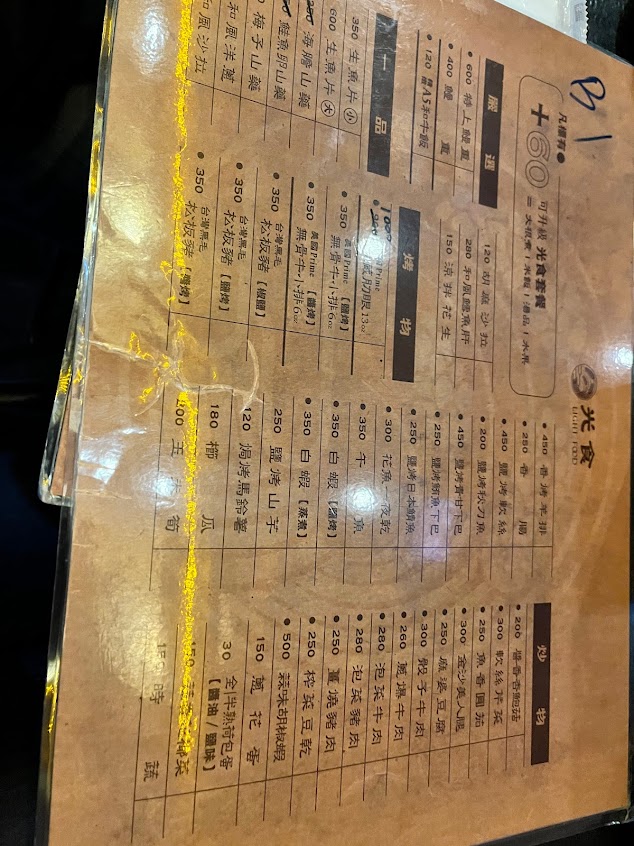 B1
凡標有●
+60 可升級 光食套餐
= 大根煮 | 米飯 | 湯品 | 水果
光食
LIGHT FOOD
嚴選
● 600 特上鰻重
● 400 鰻重
● 120 A5和牛飯
120 胡麻沙拉
280 和風鱈魚肝
150 涼拌花生
一品
350 生魚片 小
600 生魚片 大
280 海膽山藥
鮭魚卵山藥
梅子山藥
和風洋蔥
和風沙拉
烤物
13oz
● 350 美國Prime 無骨牛小排6oz【鹽烤】
● 350 美國Prime 無骨牛小排6oz【醬烤】
● 350 台灣黑毛 松板豬【椒鹽】
● 350 台灣黑毛 松板豬【鹽烤】
● 350 台灣黑毛 松板豬【醬烤】
● 450 香烤羊排
● 250 香腸
● 450 鹽烤軟絲
● 200 鹽烤秋刀魚
● 450 鹽烤青甘下巴
● 250 鹽烤鮪魚下巴
● 250 鹽烤日本鯖魚
● 300 花魚一夜乾
● 350 午魚
● 350 白蝦【鹽烤】
● 350 白蝦【蒸煮】
250 鹽烤山芋
120 焗烤馬鈴薯
180 櫛瓜
筍
炒物
● 200 醬香杏鮑菇
● 300 軟絲芹菜
● 250 魚香圓茄
● 300 金沙美人腿
● 250 麻婆豆腐
● 300 骰子牛肉
● 260 蔥爆牛肉
● 280 泡菜牛肉
● 280 泡菜豬肉
● 250 薑燒豬肉
● 250 榨菜豆乾
● 500 蒜味胡椒蝦
150 蔥花蛋
30 全|半熟荷包蛋【醬油/鹽味】
150 時蔬